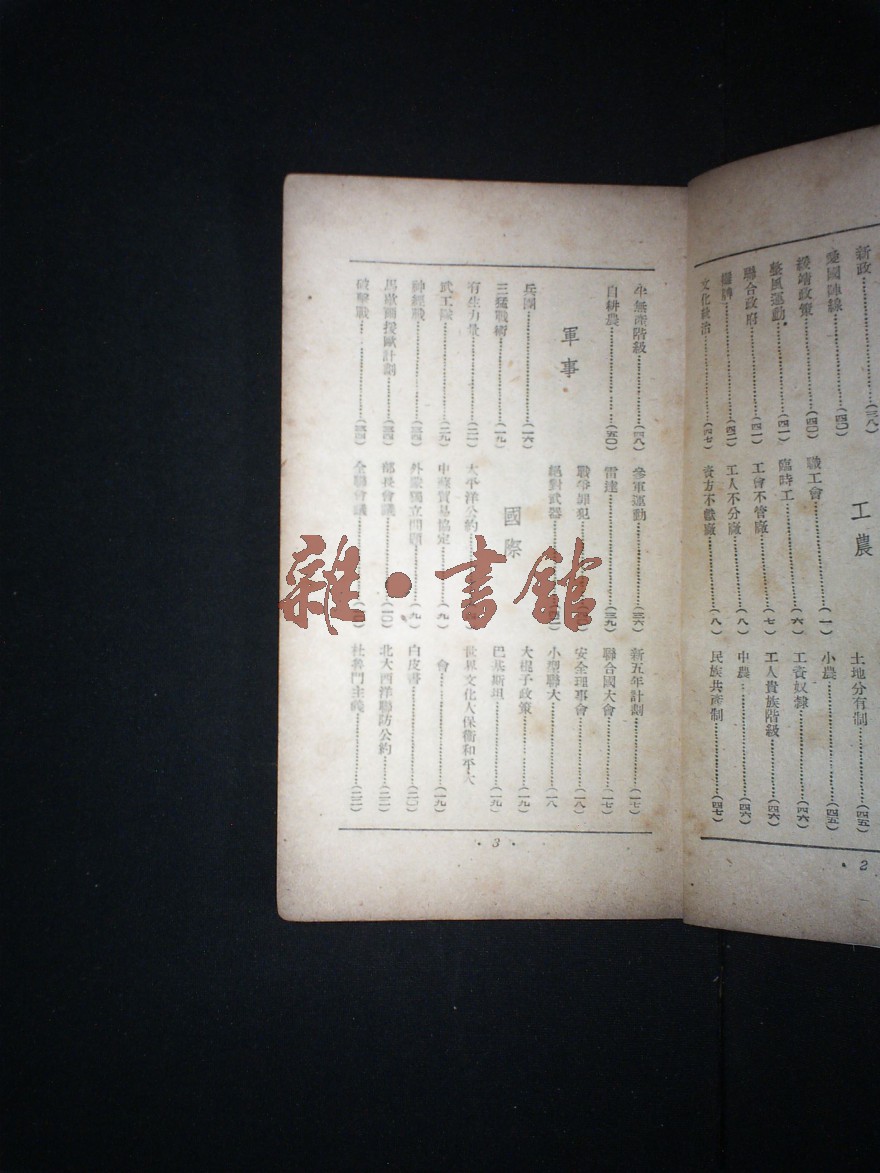 新政⋯⋯(三八)
愛國陣線⋯⋯(四〇)
綏靖政策⋯⋯(四〇)
整風運動⋯⋯(四一)
聯合政府⋯⋯(四一)
攤牌⋯⋯(四二)
文化政治⋯⋯(四七)
工農
職工會⋯⋯(一)
臨時工⋯⋯(六)
工會不管廠⋯⋯(七)
工人不分廠⋯⋯(八)
資方不懺廠⋯⋯(八)
土地分有制⋯⋯(四五)
小農⋯⋯(四五)
工資奴隸⋯⋯(四六)
工人貴族階級⋯⋯(四六)
中農⋯⋯(四六)
民族共產制⋯⋯(四七)
· 2
半無產階級⋯⋯(四八)
自耕農⋯⋯(五〇)
軍事
兵團⋯⋯(一六)
三猛戰術⋯⋯(一九)
有生力量⋯⋯(二一)
武工隊⋯⋯(二九)
神經戰⋯⋯(三四)
馬歇爾援歐計劃⋯⋯(三四)
破擊戰⋯⋯(三四)
參軍運動⋯⋯(三六)
雷達⋯⋯(三九)
戰爭罪犯
絕對武器
國際
太平洋公約
中蘇貿易協定⋯⋯(九)
外蒙獨立問題⋯⋯(九)
部長會議⋯⋯(一〇)
全聯會議
新五年計劃⋯⋯(一七)
聯合國大會⋯⋯(一七)
安全理事會⋯⋯(一八)
小型聯大⋯⋯(一八
大棍子政策⋯⋯(一九)
巴基斯坦⋯⋯(一九)
世界文化人保衛和平大
會⋯⋯(一九)
白皮書⋯⋯(二〇)
北大西洋聯防公約⋯⋯(二二)
杜魯門主義⋯⋯(二二)
· 3 ·
雜·書館